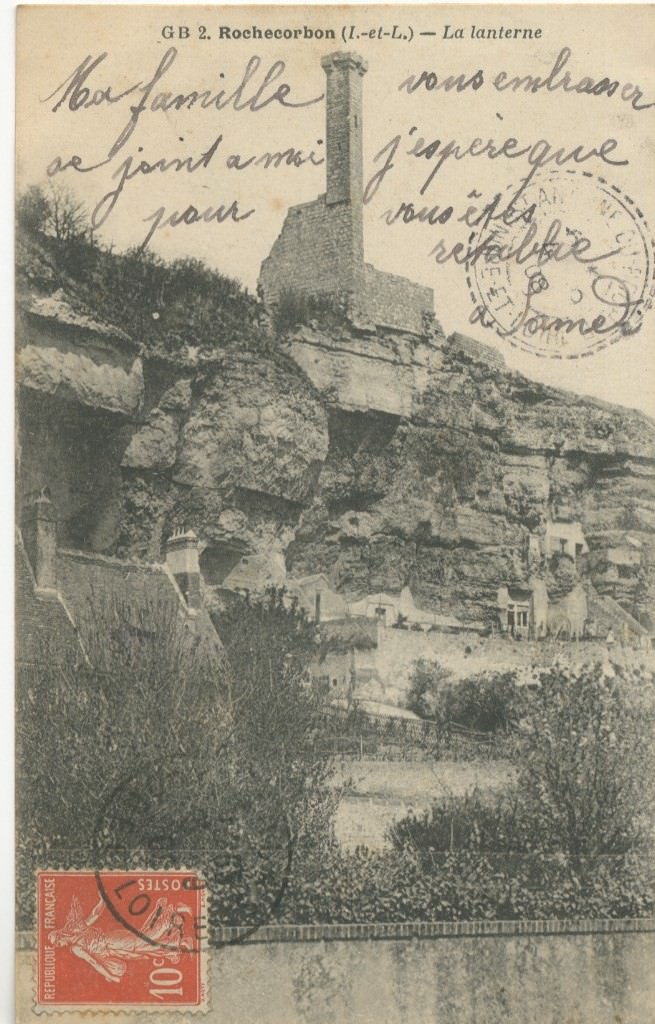 GB 2. Rochecorbon (I.-et-L.) — La lanterne
Ma famille vous embrasser
se joint a moi j'espère que
pour vous êtes
retablie
a Samedi
REPUBLIQUE FRANÇAISE
POSTES
10c
LOIRE
ET-LOIRE
08